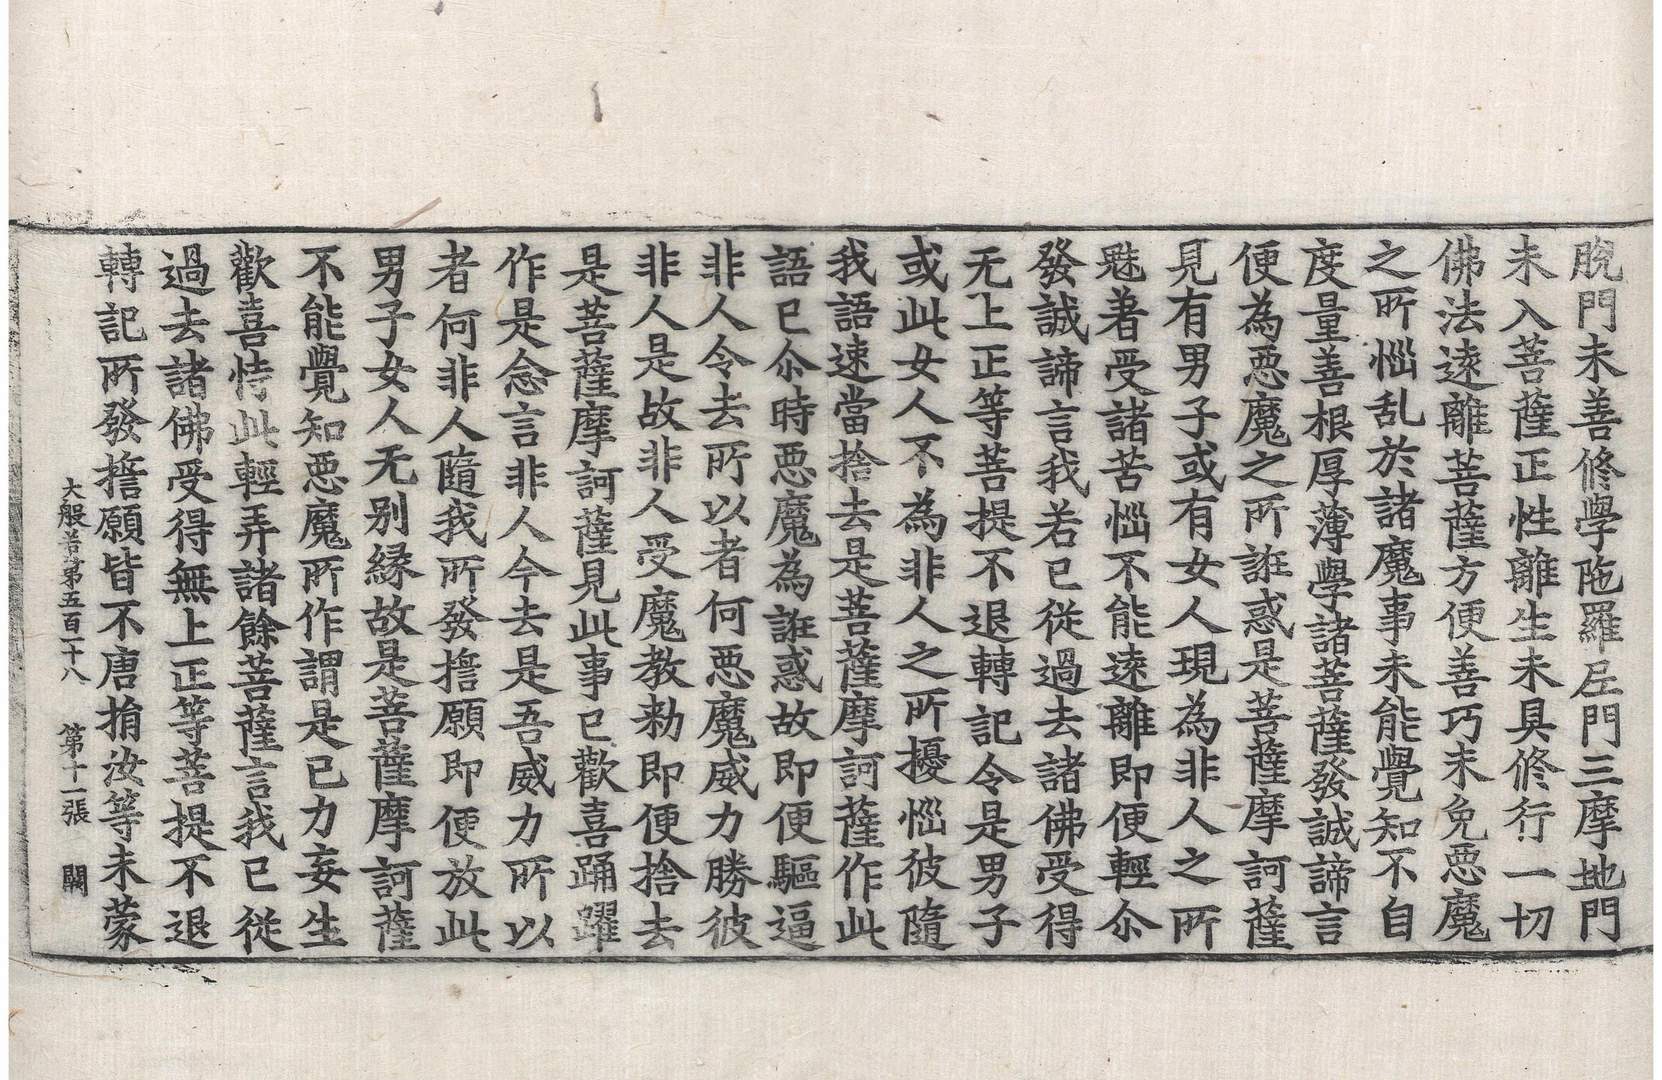 脫門未善修學陁羅尼門三摩地門
未入菩薩正性離生未具修行一切
佛法遠離菩薩方便善巧未免惡魔
之所惱乱於諸魔事未能覺知不自
度量善根厚薄學諸菩薩發誠諦言
便為惡魔之所誑惑是菩薩摩訶薩
見有男子或有女人現為非人之所
魅著受諸苦惱不能遠離即便輕尒
發誠諦言我若已從過去諸佛受得
无上正等菩提不退轉記令是男子
或此女人不為非人之所擾惱彼隨
我語速當捨去是菩薩摩訶薩作此
語已尒時惡魔為誑惑故即便驅逼
非人令去所以者何惡魔威力勝彼
非人是故非人受魔教勑即便捨去
是菩薩摩訶薩見此事已歡喜踊躍
作是念言非人今去是吾威力所以
者何非人隨我所發誓願即便放此
男子女人无別緣故是菩薩摩訶薩
不能覺知惡魔所作謂是已力妄生
歡喜恃此輕弄諸餘菩薩言我已從
過去諸佛受得無上正等菩提不退
轉記所發誓願皆不唐捐汝等未蒙
大般若第五百一十八　第十一張　闕